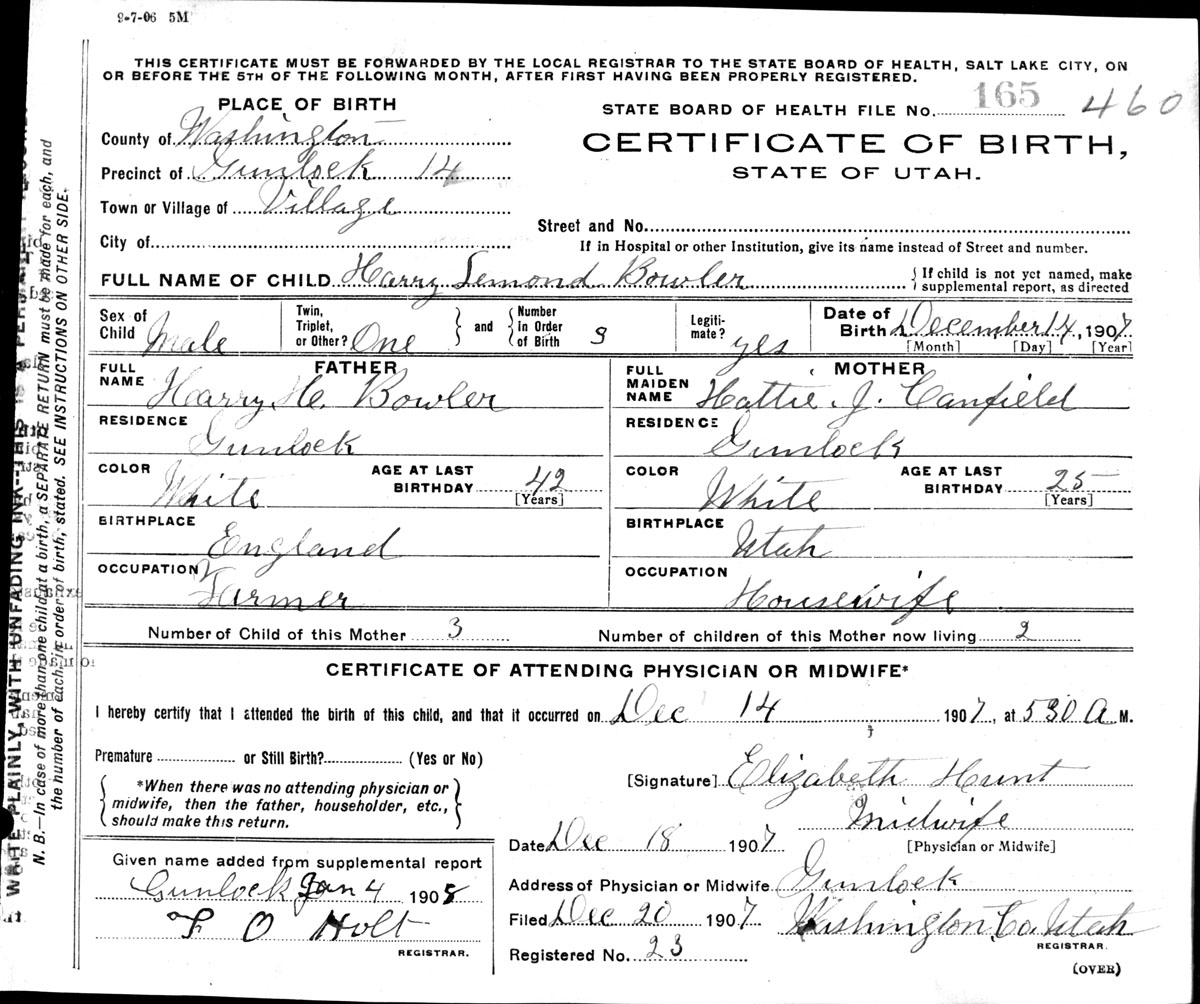 9-7-06 5M
THIS CERTIFICATE MUST BE FORWARDED BY THE LOCAL REGISTRAR TO THE STATE BOARD OF HEALTH, SALT LAKE CITY, ON
OR BEFORE THE 5TH OF THE FOLLOWING MONTH, AFTER FIRST HAVING BEEN PROPERLY REGISTERED.
PLACE OF BIRTH
STATE BOARD OF HEALTH FILE No. 165 460
County of Washington
CERTIFICATE OF BIRTH,
STATE OF UTAH.
Precinct of Gunlock 14
Town or Village of Village
Street and No.
City of
If in Hospital or other Institution, give its name instead of Street and number.
FULL NAME OF CHILD Harry Lemond Bowler
{ If child is not yet named, make
supplemental report, as directed
Sex of Child Male
Twin, Triplet, or Other? One } and { Number in Order of Birth 3
Legiti- mate? yes
Date of Birth December 14, 1907
[Month] [Day] [Year]
FATHER
FULL NAME Harry H. Bowler
RESIDENCE Gunlock
COLOR White AGE AT LAST BIRTHDAY 42 [Years]
BIRTHPLACE England
OCCUPATION Farmer
MOTHER
FULL MAIDEN NAME Hattie J. Canfield
RESIDENCE Gunlock
COLOR White AGE AT LAST BIRTHDAY 25 [Years]
BIRTHPLACE Utah
OCCUPATION Housewife
Number of Child of this Mother 3 Number of children of this Mother now living 2
CERTIFICATE OF ATTENDING PHYSICIAN OR MIDWIFE*
I hereby certify that I attended the birth of this child, and that it occurred on Dec 14 1907, at 530 A M.
Premature or Still Birth? (Yes or No)
{ *When there was no attending physician or }
midwife, then the father, householder, etc.,
should make this return.
[Signature] Elizabeth Hunt
Midwife
[Physician or Midwife]
Date Dec 18 1907
Address of Physician or Midwife Gunlock
Filed Dec 20 1907 Washington Co. Utah
REGISTRAR.
Registered No. 23
(OVER)
Given name added from supplemental report
Gunlock Jan 4 1908
F O Holt
REGISTRAR.
WRITE PLAINLY, WITH UNFADING INK—THIS IS A
N. B.—In case of more than one child at a birth, a SEPARATE RETURN must be made for each, and
the number of each, in order of birth, stated. SEE INSTRUCTIONS ON OTHER SIDE.